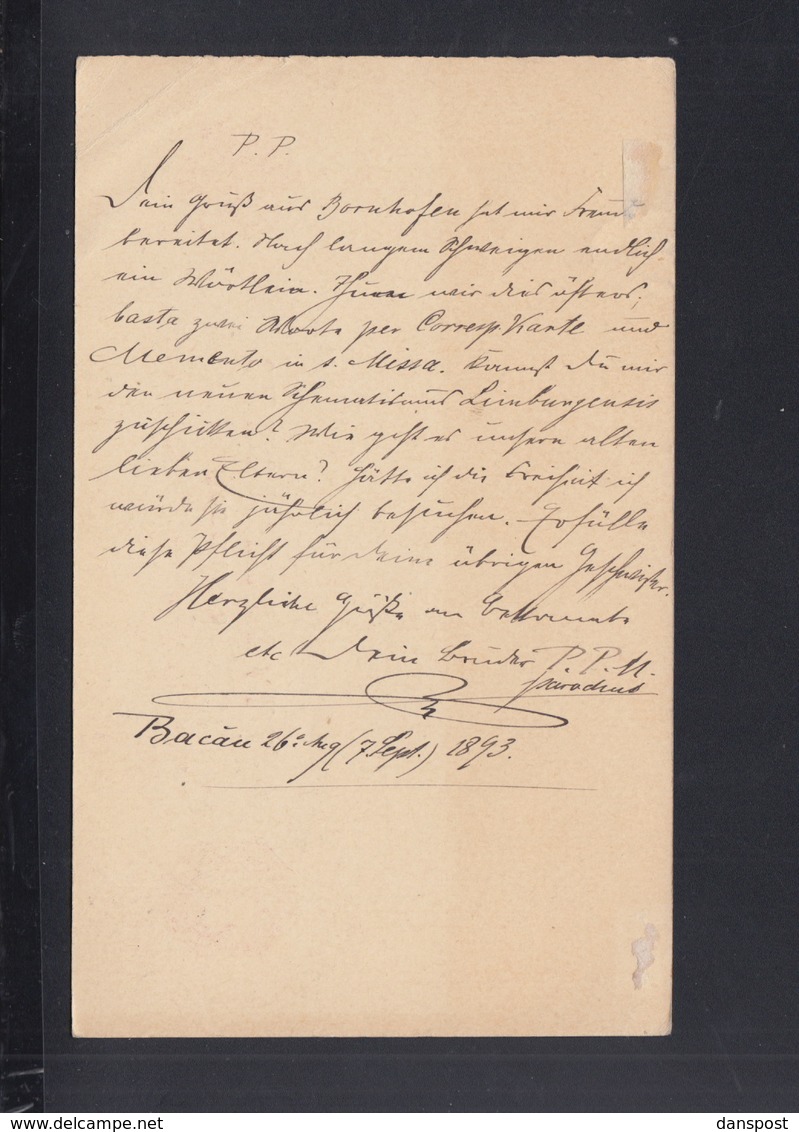 P. P.
Dein Gruß aus Bornhofen hat mir Freude
bereitet. Nach langem Schweigen endlich
ein Wörtlein. Thuen wir dies öfters;
basta zwei Worte per Corresp. Karte und
Memento in s. Missa. Kannst Du mir
den neuen Schematismus Limburgensis
zuschicken? Wie geht es unsern alten
lieben Eltern? Hätte ich die Freiheit ich
würde sie jährlich besuchen. Erfülle
diese Pflicht für deine übrigen Geschwister.
Herzliche Grüße an Bekannte
etc Dein Bruder P. P. M.
Bacău 26. Aug (7 Sept.) 1893.
danspost